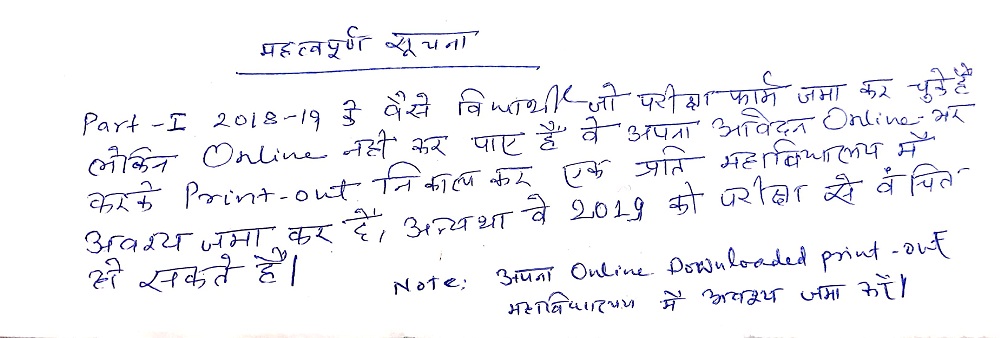 महत्वपूर्ण सूचना
Part-I 2018-19 के वैसे विद्यार्थी जो परीक्षा फार्म जमा कर चुके हैं
लेकिन Online नहीं कर पाए हैं वे अपना आवेदन Online भर
करके Print-out निकाल कर एक प्रति महाविद्यालय में
अवश्य जमा कर दें, अन्यथा वे 2019 की परीक्षा से वंचित
हो सकते हैं।
Note: अपना Online Downloaded print-out
महाविद्यालय में अवश्य जमा करें।